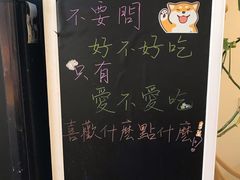 不要問
好不好吃
只有
愛不愛吃
喜歡什麼點什麼